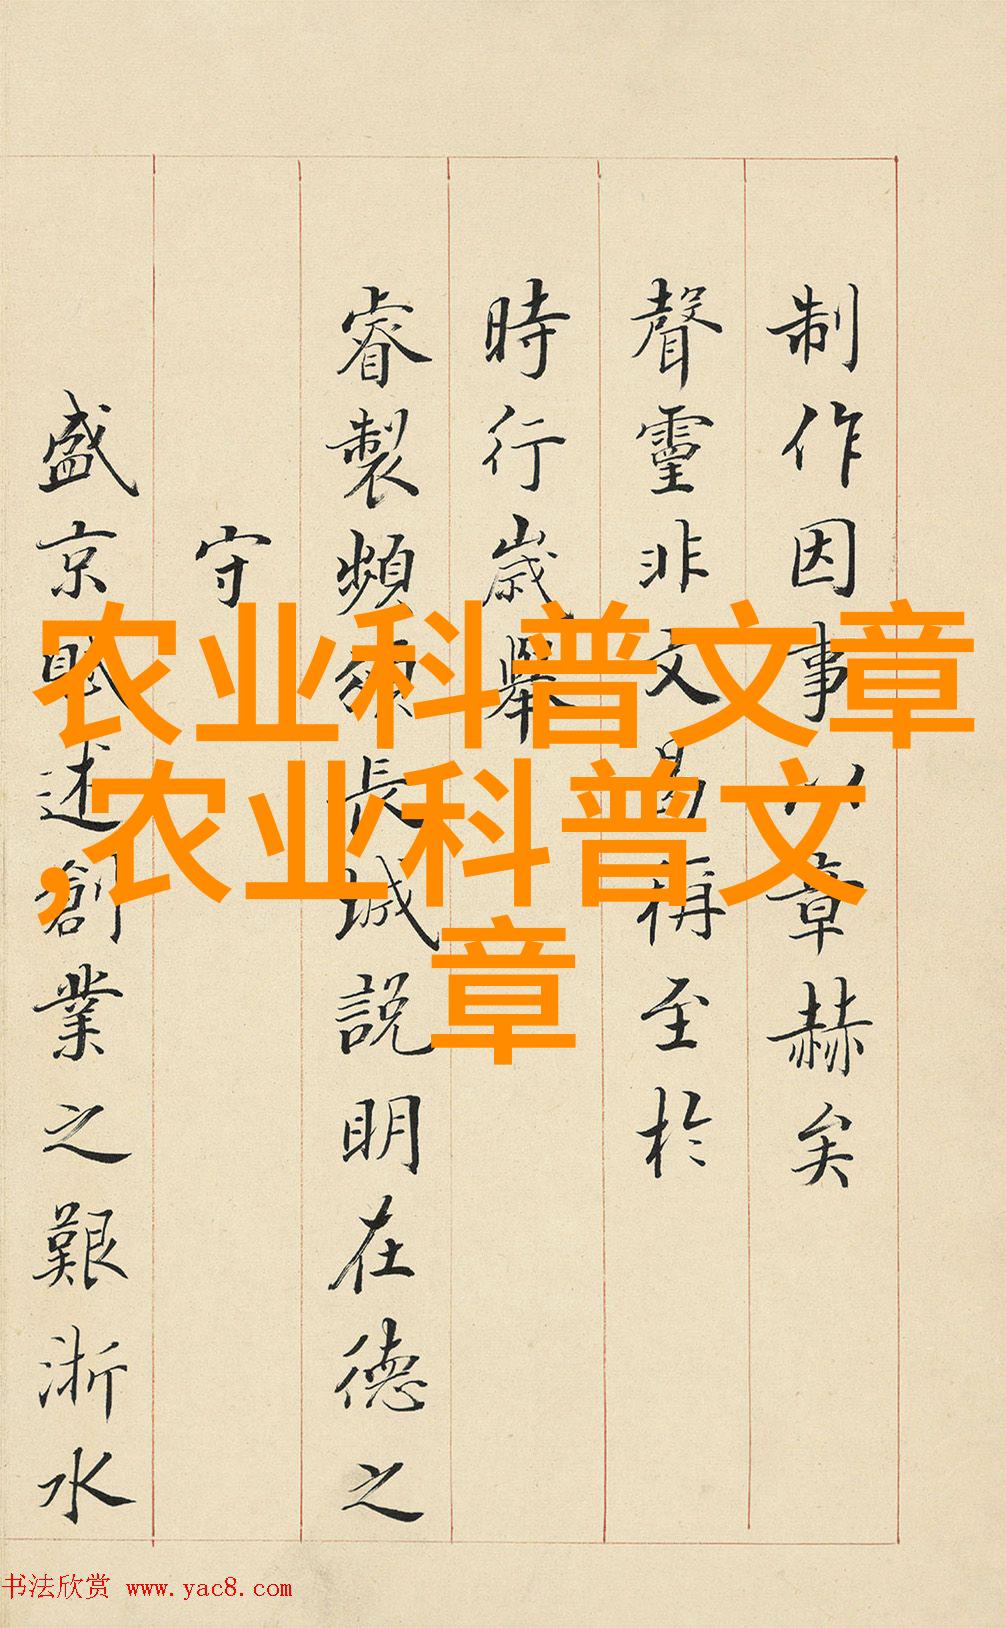 制作因事以章赫矣
聲靈非文曷稱至於
時行歲舉
睿製頻頒長城説明在德之
守
盛京賦述創業之艱浙水
农业科普文章
,农业科普文
章
书法欣赏 www.yac8.com